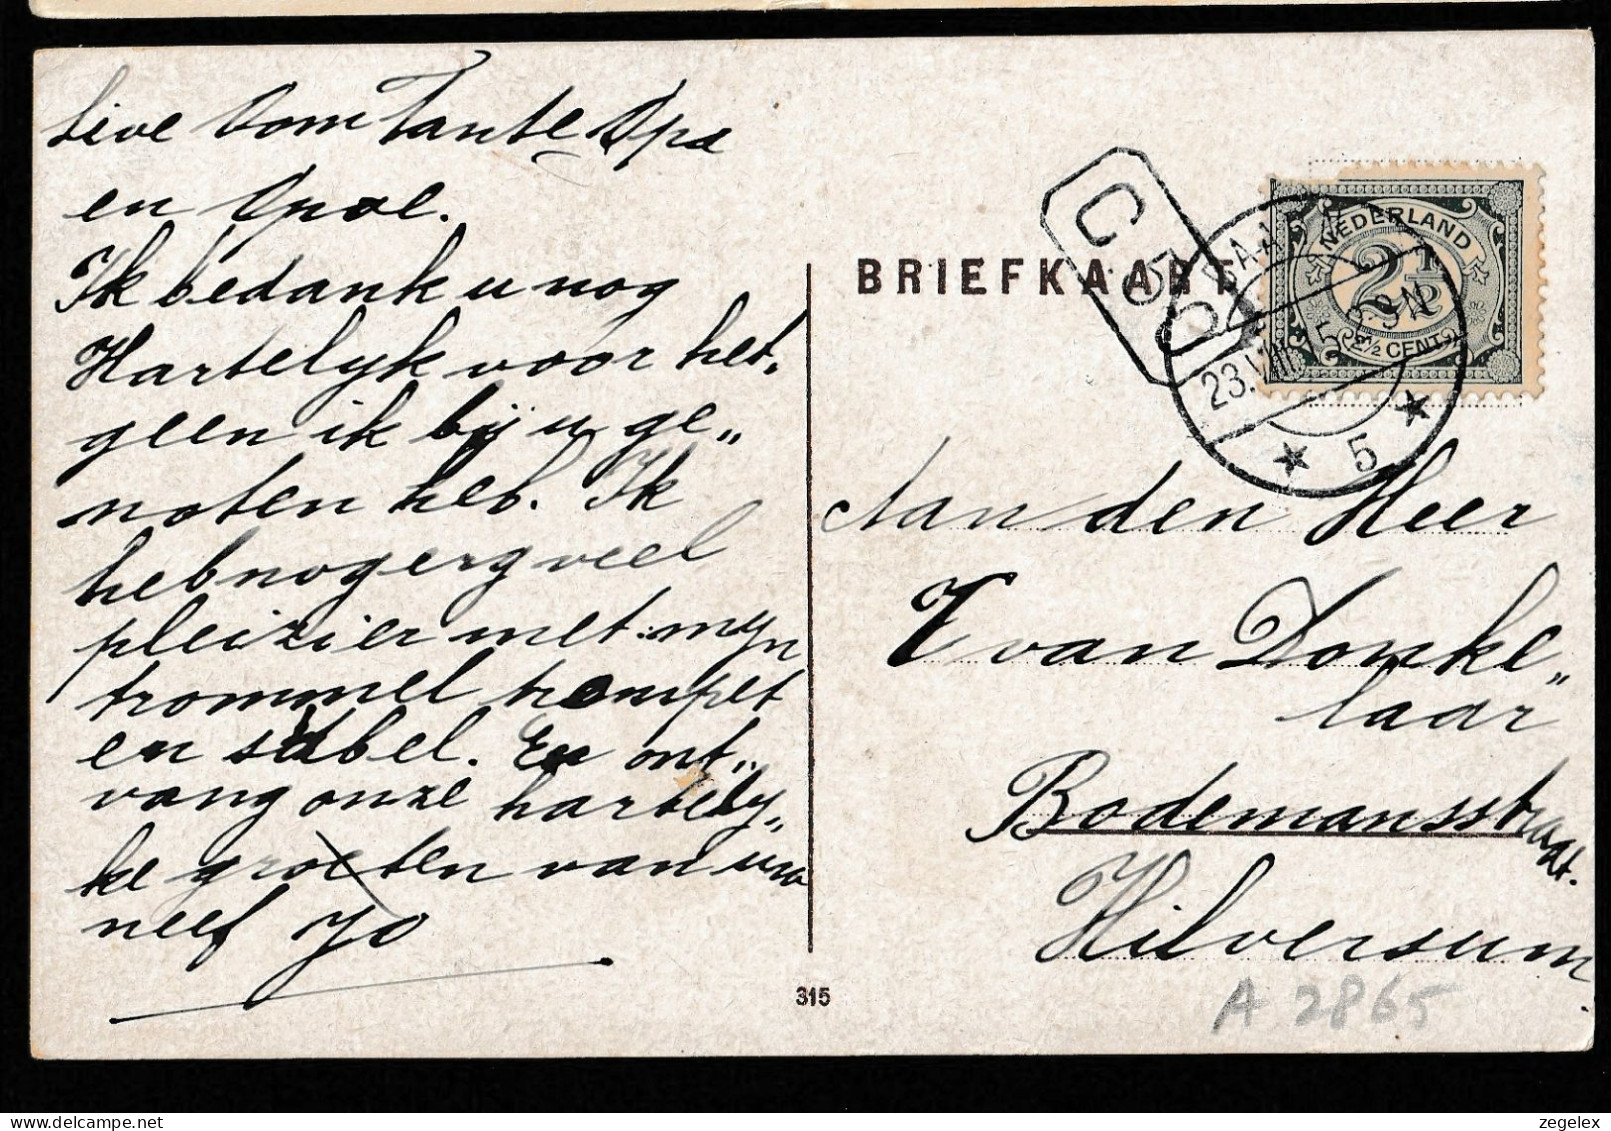 Live Oom Tante Opa
en Opoe.
Ik bedank u nog
Hartelyk voor het,
geen ik bij u ge„
noten heb. Ik
heb nog erg veel
pleizier met myn
trommel trompet
en sabel. En ont„
vang onze hartely„
ke groeten van uw
neef Jo
BRIEFKAART
C 50
NEDERLAND
2½
2½ CENT
23.VIII.15 8-9N
5
Aan den Heer
T van Donke„
laar
Bodemansstraat.
Hilversum
A 2865
315
zegelex